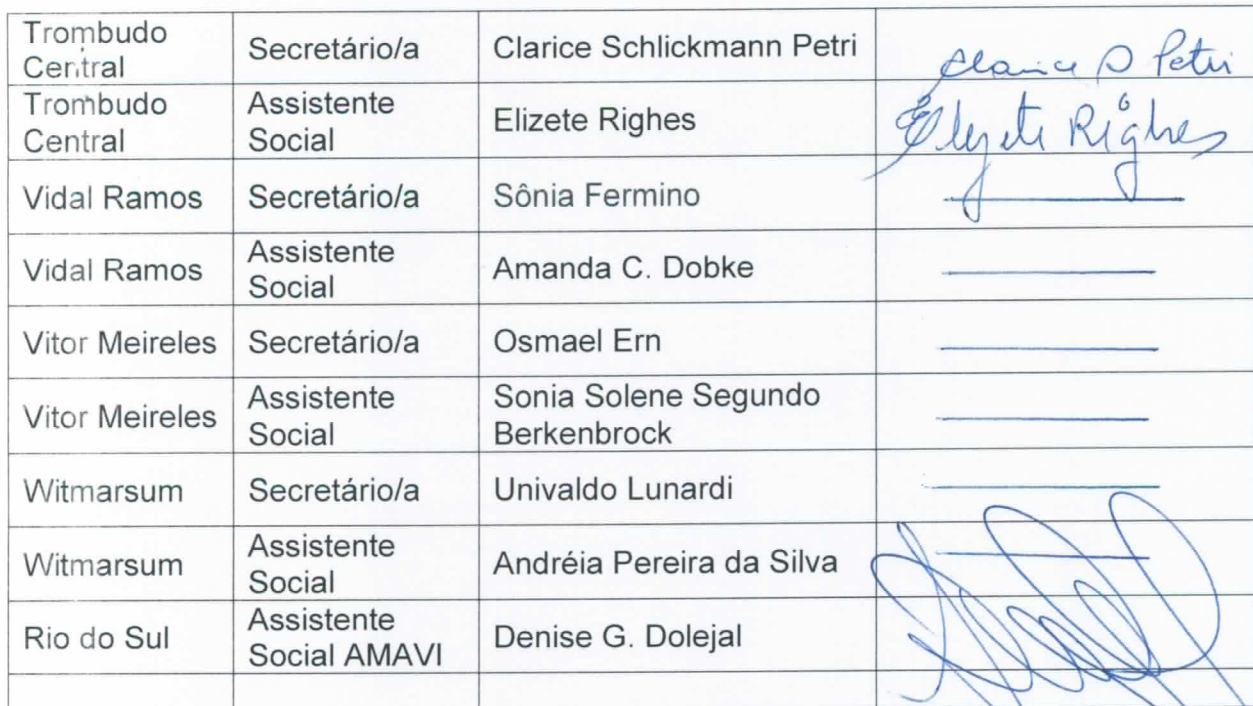 Trombudo Central Secretário/a Clarice Schlickmann Petri Clarice S Petri
Trombudo Central Assistente Social Elizete Righes Elizete Righes
Vidal Ramos Secretário/a Sônia Fermino
Vidal Ramos Assistente Social Amanda C. Dobke
Vitor Meireles Secretário/a Osmael Ern
Vitor Meireles Assistente Social Sonia Solene Segundo Berkenbrock
Witmarsum Secretário/a Univaldo Lunardi
Witmarsum Assistente Social Andréia Pereira da Silva
Rio do Sul Assistente Social AMAVI Denise G. Dolejal